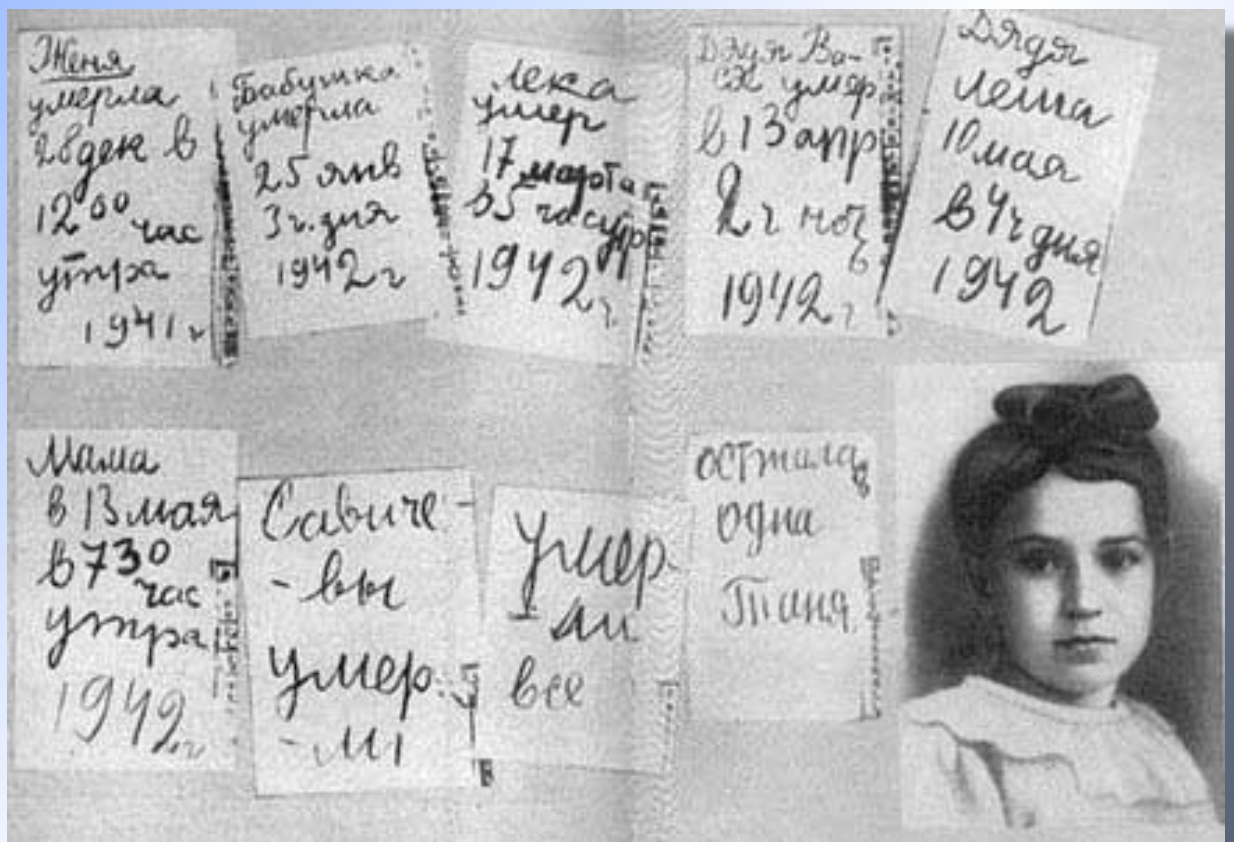 Женя
умерла
28 дек в
12 00 час
утра
1941 г
Бабушка
умерла
25 янв
3 ч. дня
1942 г
Лека
умер
17 марта
в 5 час утр
1942 г
Дядя Ва-
ся умер
в 13 апр
2 ч ночь
1942 г
Дядя
Леша
10 мая
в 4 ч дня
1942
Мама
в 13 мая
в 7 30
час
утра
1942 г
Савиче-
-вы
умер-
-ли
Умер-
-ли
все
осталась
одна
Таня